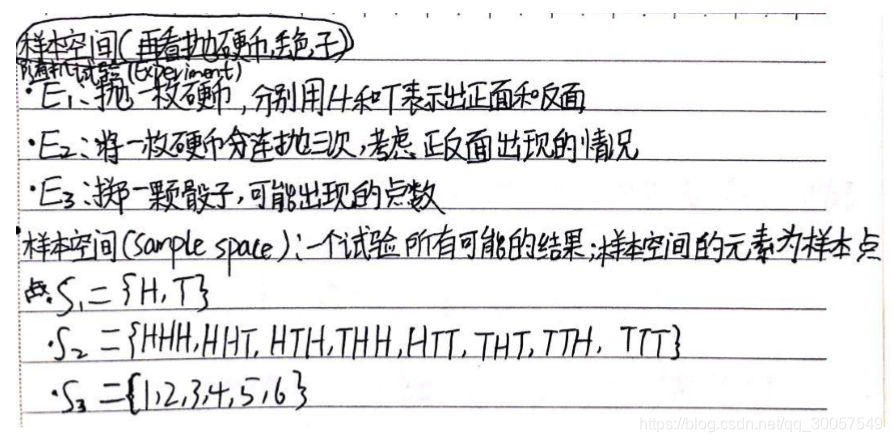 样本空间(再看抛硬币,丢色子)
随机试验(Experiment)
·E₁:抛一枚硬币,分别用H和T表示出正面和反面
·E₂:将一枚硬币连抛三次,考虑正反面出现的情况
·E₃:掷一颗骰子,可能出现的点数
·样本空间(Sample space):一个试验所有可能的结果;样本空间的元素为样本点
S₁={H,T}
·S₂={HHH,HHT,HTH,THH,HTT,THT,TTH,TTT}
·S₃={1,2,3,4,5,6}
https://blog.csdn.net/qq_30057549